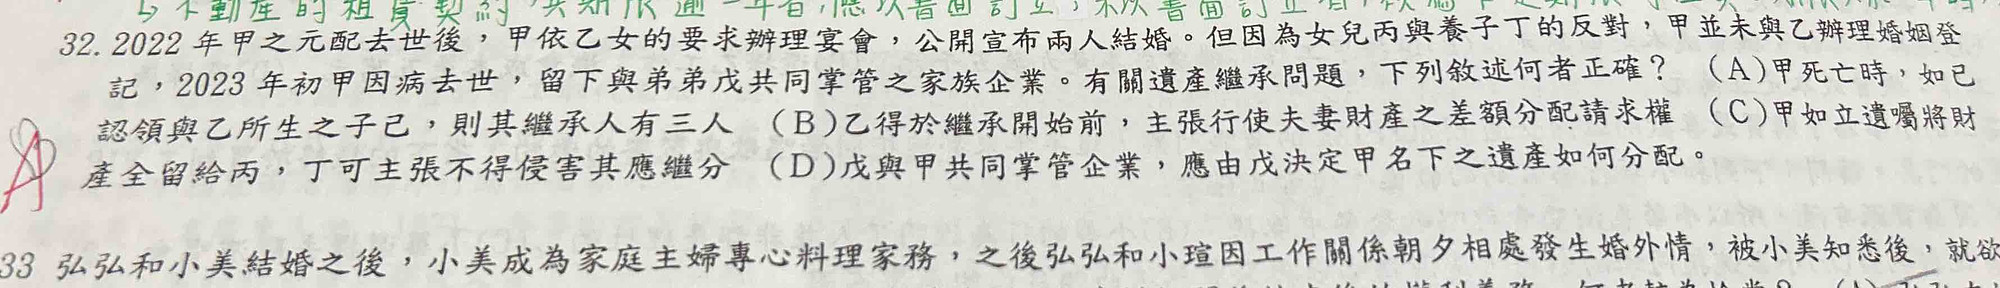 不動產的租賃契約,其期限逾一年者,應以書面訂立,未以書面訂立者,
32. 2022 年甲之元配去世後,甲依乙女的要求辦理宴會,公開宣布兩人結婚。但因為女兒丙與養子丁的反對,甲並未與乙辦理婚姻登
記,2023 年初甲因病去世,留下與弟弟戊共同掌管之家族企業。有關遺產繼承問題,下列敘述何者正確? (A)甲死亡時,如已
認領與乙所生之子己,則其繼承人有三人 (B)乙得於繼承開始前,主張行使夫妻財產之差額分配請求權 (C)甲如立遺囑將財
A 產全留給丙,丁可主張不得侵害其應繼分 (D)戊與甲共同掌管企業,應由戊決定甲名下之遺產如何分配。
33 弘弘和小美結婚之後,小美成為家庭主婦專心料理家務,之後弘弘和小瑄因工作關係朝夕相處發生婚外情,被小美知悉後,就欲